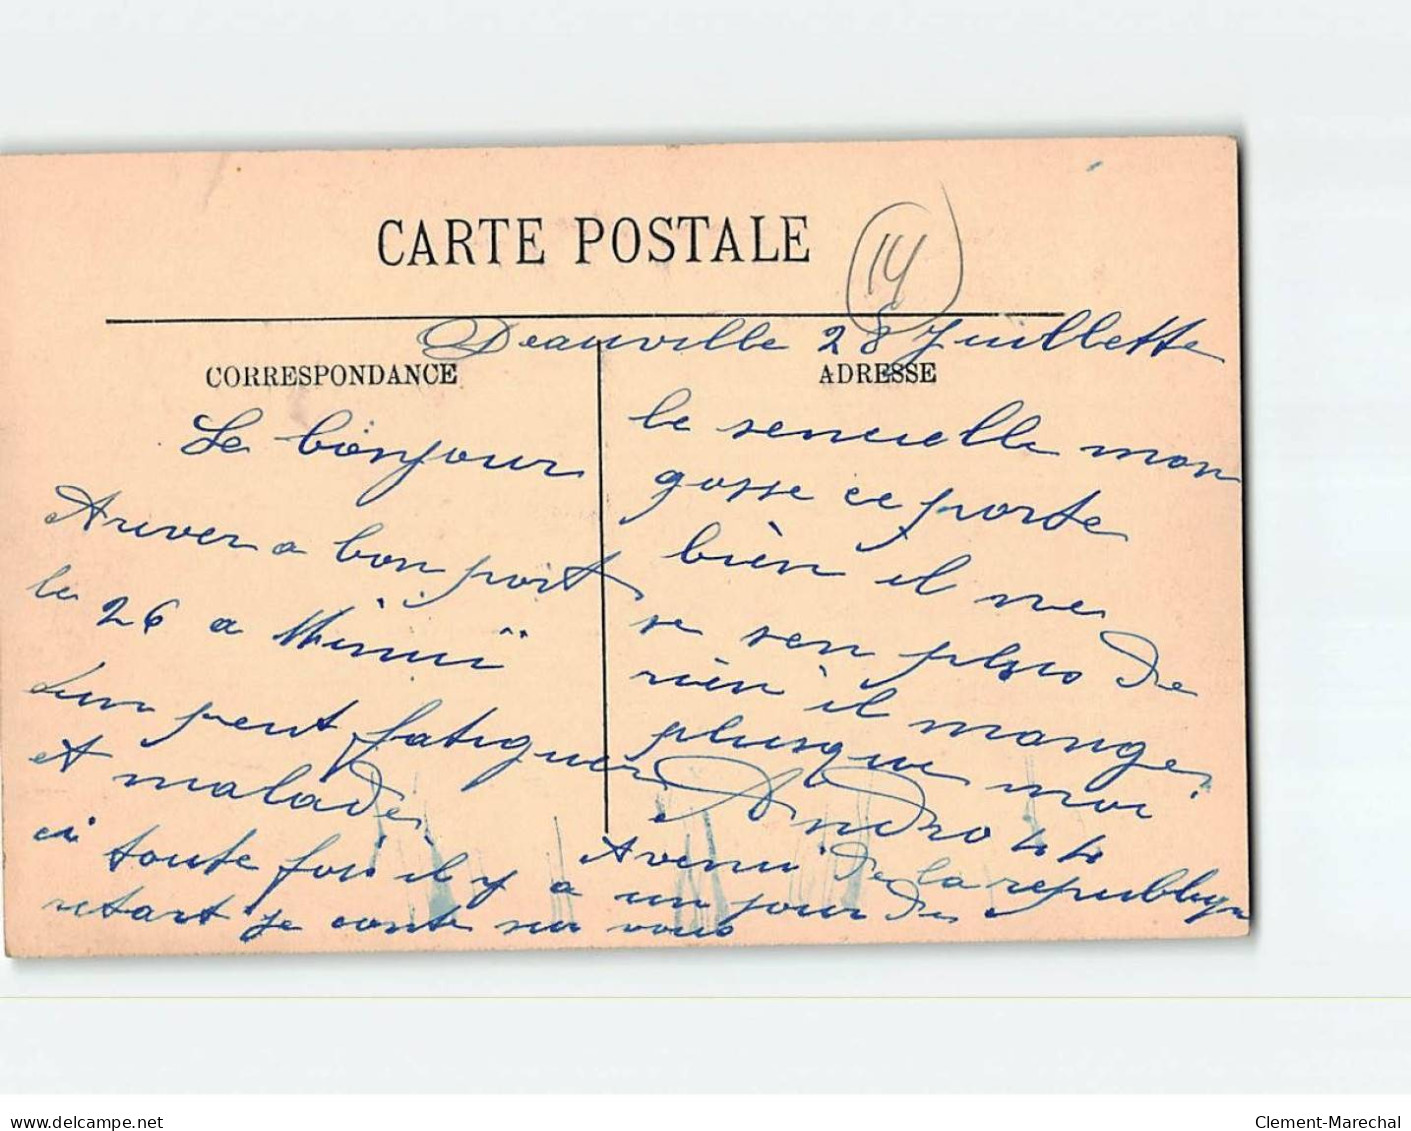 CARTE POSTALE
14
Deauville 28 Juillette
CORRESPONDANCE
ADRESSE
Le bonjour
Ariver a bon port
le 26 a Minuï
un peut fatiguer
et malade
si toute fois il y a un jour de
retart je conte sur vous
la senuelle mon
gosse ce porte
bien il ne
se sen plus de
rien il mange
plusque moi
Andro 44
Avenu de la republlque
www.delcampe.net
Clement-Marechal